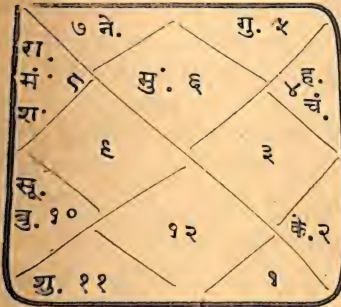 ७ ने.
गु. ५
रा.
मं ८
श.
सुं. ६
४ ह.
चं.
९
३
सू.
बु. १०
१२
के. २
शु. ११
१